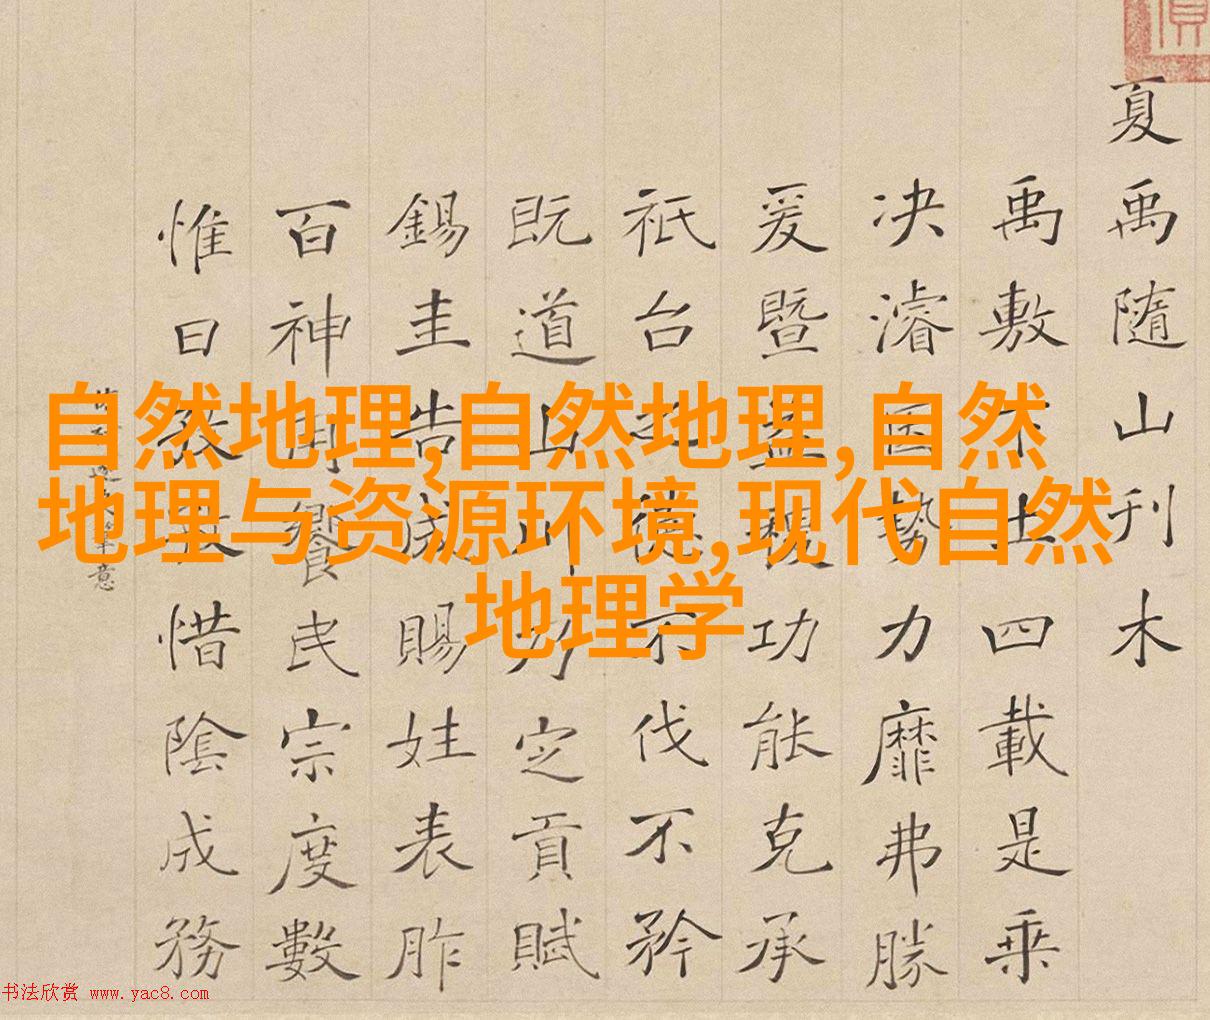 夏禹隨山刊木
禹敷下土四載是乘
决濬因勢力靡弗勝
爰暨益稷功能克承
祇台德不伐不矜
既道山川定貢賦
錫圭告成賜姓表胙
百神用饗民宗度數
惟日孜孜惜陰成務
意
自然地理,自然地理,自然
地理与资源环境,现代自然
地理学
书法欣赏 www.yac8.com